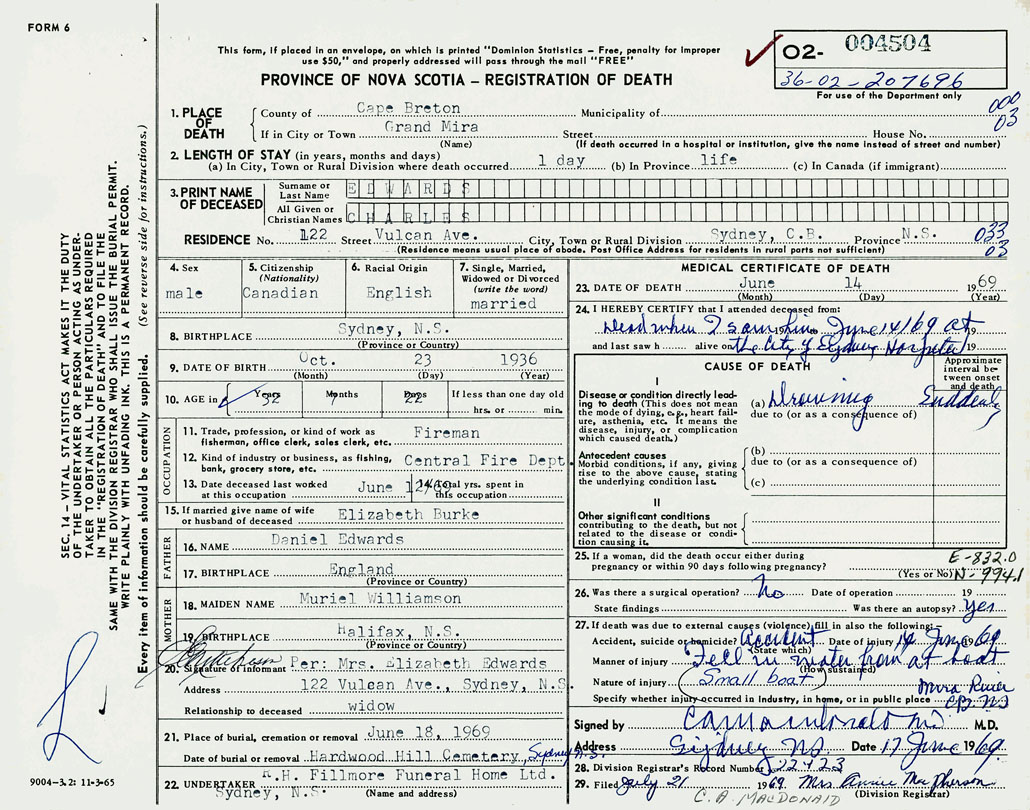 FORM 6
This form, if placed in an envelope, on which is printed "Dominion Statistics – Free, penalty for improper
use $50," and properly addressed will pass through the mail "FREE"
PROVINCE OF NOVA SCOTIA – REGISTRATION OF DEATH
O2- 004504
36-02-207696
For use of the Department only
000
03
1. PLACE OF DEATH
County of Cape Breton Municipality of
If in City or Town Grand Mira Street House No.
(Name) (If death occurred in a hospital or institution, give the name instead of street and number)
2. LENGTH OF STAY (in years, months and days)
(a) In City, Town or Rural Division where death occurred 1 day (b) In Province life (c) In Canada (if immigrant)
3. PRINT NAME OF DECEASED
Surname or Last Name EDWARDS
All Given or Christian Names CHARLES
RESIDENCE No. 122 Street Vulcan Ave. City, Town or Rural Division Sydney, C.B. Province N.S.
033
03
(Residence means usual place of abode. Post Office Address for residents in rural parts not sufficient)
4. Sex
male
5. Citizenship
(Nationality)
Canadian
6. Racial Origin
English
7. Single, Married,
Widowed or Divorced
(write the word)
married
8. BIRTHPLACE Sydney, N.S.
(Province or Country)
9. DATE OF BIRTH Oct. 23 1936
(Month) (Day) (Year)
10. AGE in Years 32 Months 7 Days 22 If less than one day old
hrs. or min.
OCCUPATION
11. Trade, profession, or kind of work as
fisherman, office clerk, sales clerk, etc. Fireman
12. Kind of industry or business, as fishing,
bank, grocery store, etc. Central Fire Dept.
13. Date deceased last worked
at this occupation June 12/69
14. Total yrs. spent in
this occupation
15. If married give name of wife
or husband of deceased Elizabeth Burke
FATHER
16. NAME Daniel Edwards
17. BIRTHPLACE England
(Province or Country)
MOTHER
18. MAIDEN NAME Muriel Williamson
19. BIRTHPLACE Halifax, N.S.
(Province or Country)
20. Signature of informant Per: Mrs. Elizabeth Edwards
Address 122 Vulcan Ave., Sydney, N.S.
Relationship to deceased widow
21. Place of burial, cremation or removal June 18, 1969
Date of burial or removal Hardwood Hill Cemetery, Sydney N.S.
22. UNDERTAKER H. Fillmore Funeral Home Ltd.
Sydney, N.S. (Name and address)
MEDICAL CERTIFICATE OF DEATH
23. DATE OF DEATH June 14 1969
(Month) (Day) (Year)
24. I HEREBY CERTIFY that I attended deceased from:
Dead when I saw him June 14/69 at 19
and last saw h alive on the City of Sydney Hospital 19
CAUSE OF DEATH
Approximate
interval be-
tween onset
and death
I
Disease or condition directly lead-
ing to death (This does not mean
the mode of dying, e.g., heart fail-
ure, asthenia, etc. It means the
disease, injury, or complication
which caused death.)
(a) Drowning Suddenly
due to (or as a consequence of)
Antecedent causes
Morbid conditions, if any, giving
rise to the above cause, stating
the underlying condition last.
(b)
due to (or as a consequence of)
(c)
II
Other significant conditions
contributing to the death, but not
related to the disease or condi-
tion causing it.
25. If a woman, did the death occur either during
pregnancy or within 90 days following pregnancy?
(Yes or No)
E-832.0
N-994.1
26. Was there a surgical operation? No Date of operation 19
State findings Was there an autopsy? Yes
27. If death was due to external causes (violence) fill in also the following:
Accident, suicide or homicide? Accident Date of injury 14 June 1969
(State which)
Manner of injury Fell in water from at boat
(How sustained)
Nature of injury (Small boat)
Mira River
C.B. N.S
Specify whether injury occurred in Industry, in home, or in public place
Signed by C A MacDonald MD M.D.
Address Sydney NS Date 17 June 1969
28. Division Registrar's Record Number 22423
29. Filed July 21 1969 Mrs Annie MacPherson
(Division Registrar)
C. A. MACDONALD
SEC. 14 – VITAL STATISTICS ACT MAKES IT THE DUTY
OF THE UNDERTAKER OR PERSON ACTING AS UNDER-
TAKER TO OBTAIN ALL THE PARTICULARS REQUIRED
IN THE "REGISTRATION OF DEATH" AND TO FILE THE
SAME WITH THE DIVISION REGISTRAR WHO SHALL ISSUE THE BURIAL PERMIT.
WRITE PLAINLY WITH UNFADING INK. THIS IS A PERMANENT RECORD.
Every item of information should be carefully supplied. (See reverse side for instructions.)
9004-3.2: 11-3-65